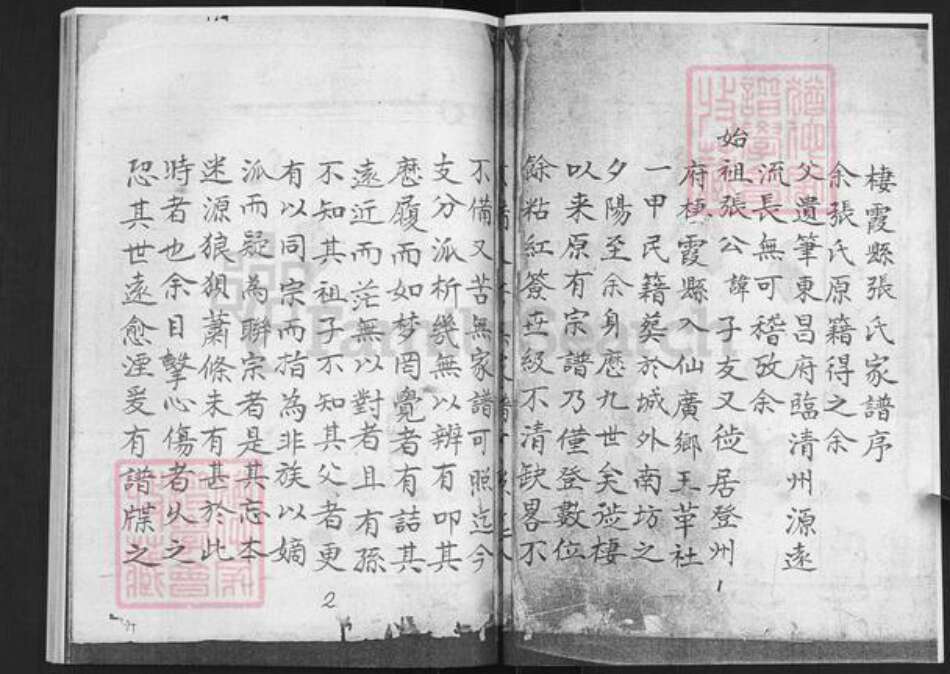 棲霞縣張氏家譜序
余張氏原籍得之余
父遺筆東昌府臨清州源遠
流長無可稽攷余
始祖張公諱子友又徙居登州
府棲霞縣入仙廣鄉玉華社
一甲民籍葬於城外南坊之
夕陽至余身歷九世矣從棲
以来原有宗譜乃僅登數位
餘粘紅簽世級不清缺畧不
不備又苦無家譜可照迄今
支分派析幾無以辨有叩其
歷履而如梦罔覺者有詰其
遠近而茫無以對者且有孫
不知其祖子不知其父者更
有以同宗而指為非族以嫡
派而疑為聯宗者是其忘本
迷源狼狽蕭條未有甚於此
時者也余目擊心傷者久之
恐其世遠愈湮爰有譜牒之
1
2
FamilySearch